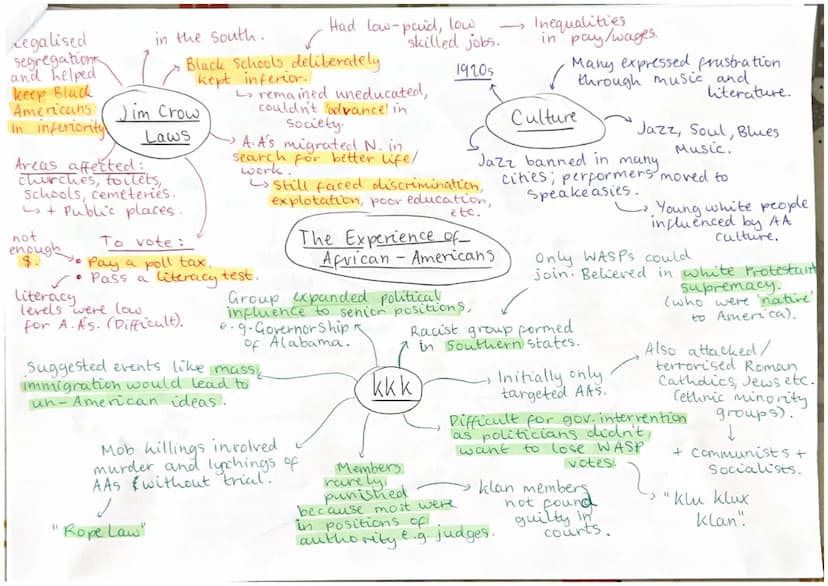 Legalised
segregation
and helped
keep Black
Americans
in inferiority
Jim Crow
Laws
in the south.
Black Schools deliberately
kept inferior.
↳ remained uneducated,
couldn't 'advance' in
society.
Had low-paid, low
skilled jobs.
→ Inequalities
in pay/wages.
A.A's migrated N. in
search for better life/
work.
↳ Still faced discrimination,
explotation, poor education,
etc.
Areas affected:
churches, toilets,
schools, cemeteries.
↳ + Public places.
To vote:
• Pay a poll tax.
• Pass a literacy test.
not
enough
$.
literacy
levels were low
for A.A's. (Difficult).
1920s
Culture
Many expressed frustration
through music and
literature.
Jazz, Soul, Blues
Music.
Jazz banned in many
cities; performers moved to
speakeasies.
Young white people
influenced by AA
culture.
The Experience of
African-Americans
KKK
Group expanded political
influence to senior positions,
e.g. Governorship
of Alabama.
Racist group formed
in Southern states.
Only WASPs could
join. Believed in white Protestant
supremacy.
(who were 'native'
to America).
Suggested events like mass
immigration would lead to
un-American ideas.
Initially only
targeted AAs.
Also attacked/
terrorised Roman
Catholics, Jews etc.
(ethnic minority
groups).
+ communists +
socialists.
Mob killings involved
murder and lynchings of
AAs (without trial.
"Rope Law"
Members
rarely
punished
because most were
in positions of
authority e.g. judges.
Klan members
not found
guilty in
courts.
Difficult for gov. intervention
as politicians didn't
want to lose WASP
votes.
"Klu Klux
Klan".